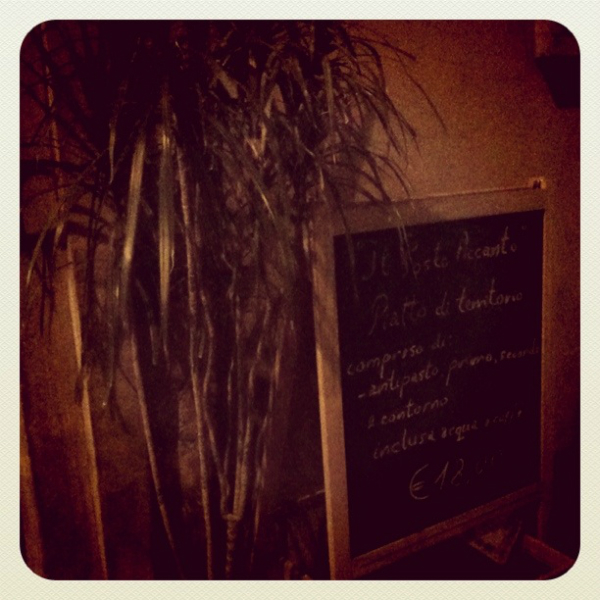 "Il Posto Accanto"
Piatto di territorio
compreso di:
-antipasto, primo, secondo
e contorno
inclusa acqua
€ 12,00